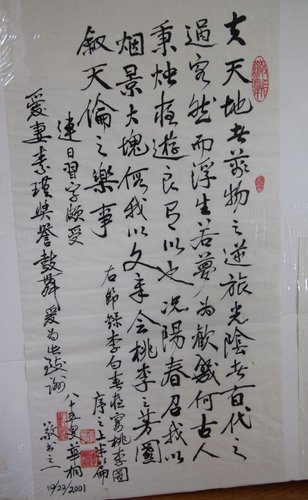 夫天地者萬物之逆旅光陰者百代之
過客然而浮生若夢為歡幾何古人
秉燭夜遊良有以也况陽春召我以
烟景大塊假我以文章會桃李之芳園
叙天倫之樂事
右節錄李白春夜宴桃李園
序之上半篇
連日習字頗受
愛妻素瑾獎譽鼓舞爰為此致謝
叟英桐
10/23/2001